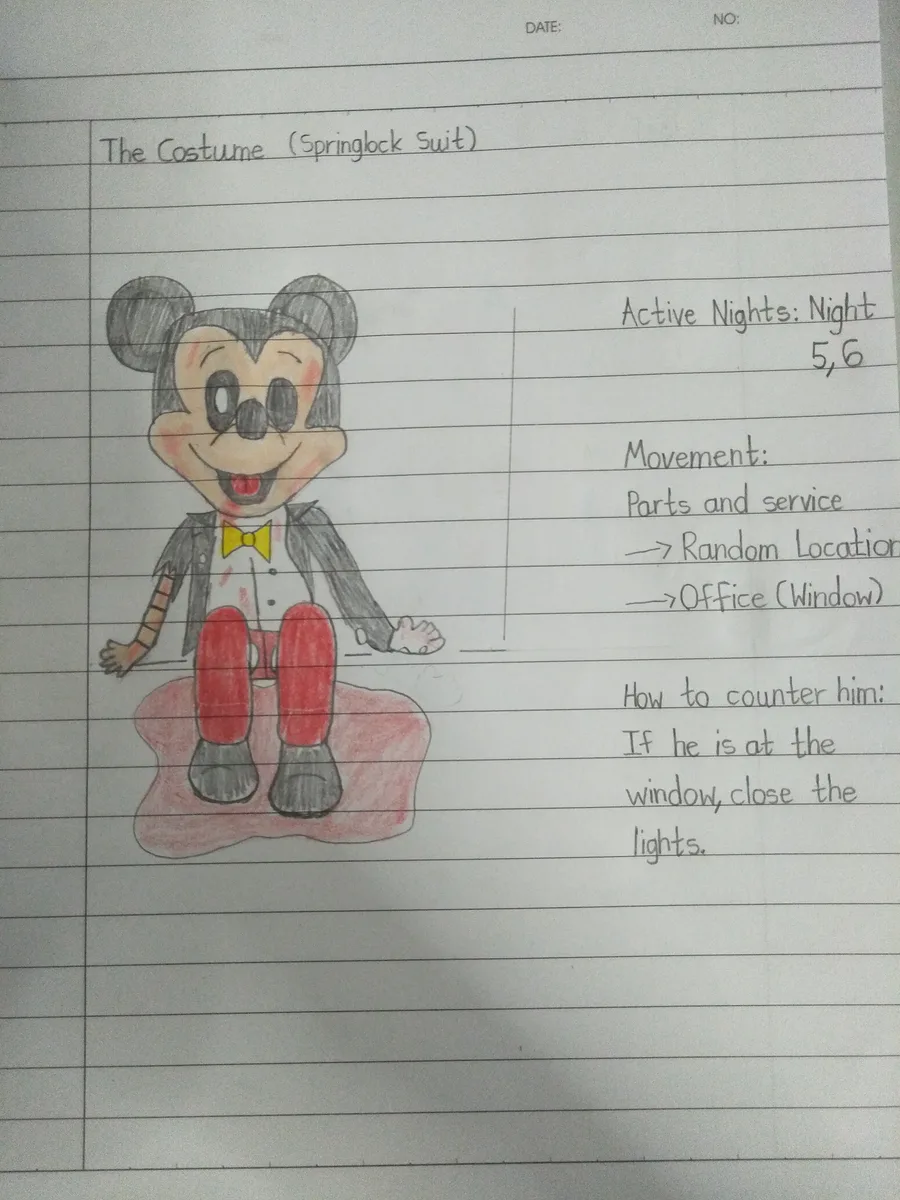 DATE:
NO:
The Costume (Springlock Suit)
Active Nights: Night
5,6
Movement:
Parts and service
→ Random Location
→ Office (Window)
How to counter him:
If he is at the
window, close the
lights.